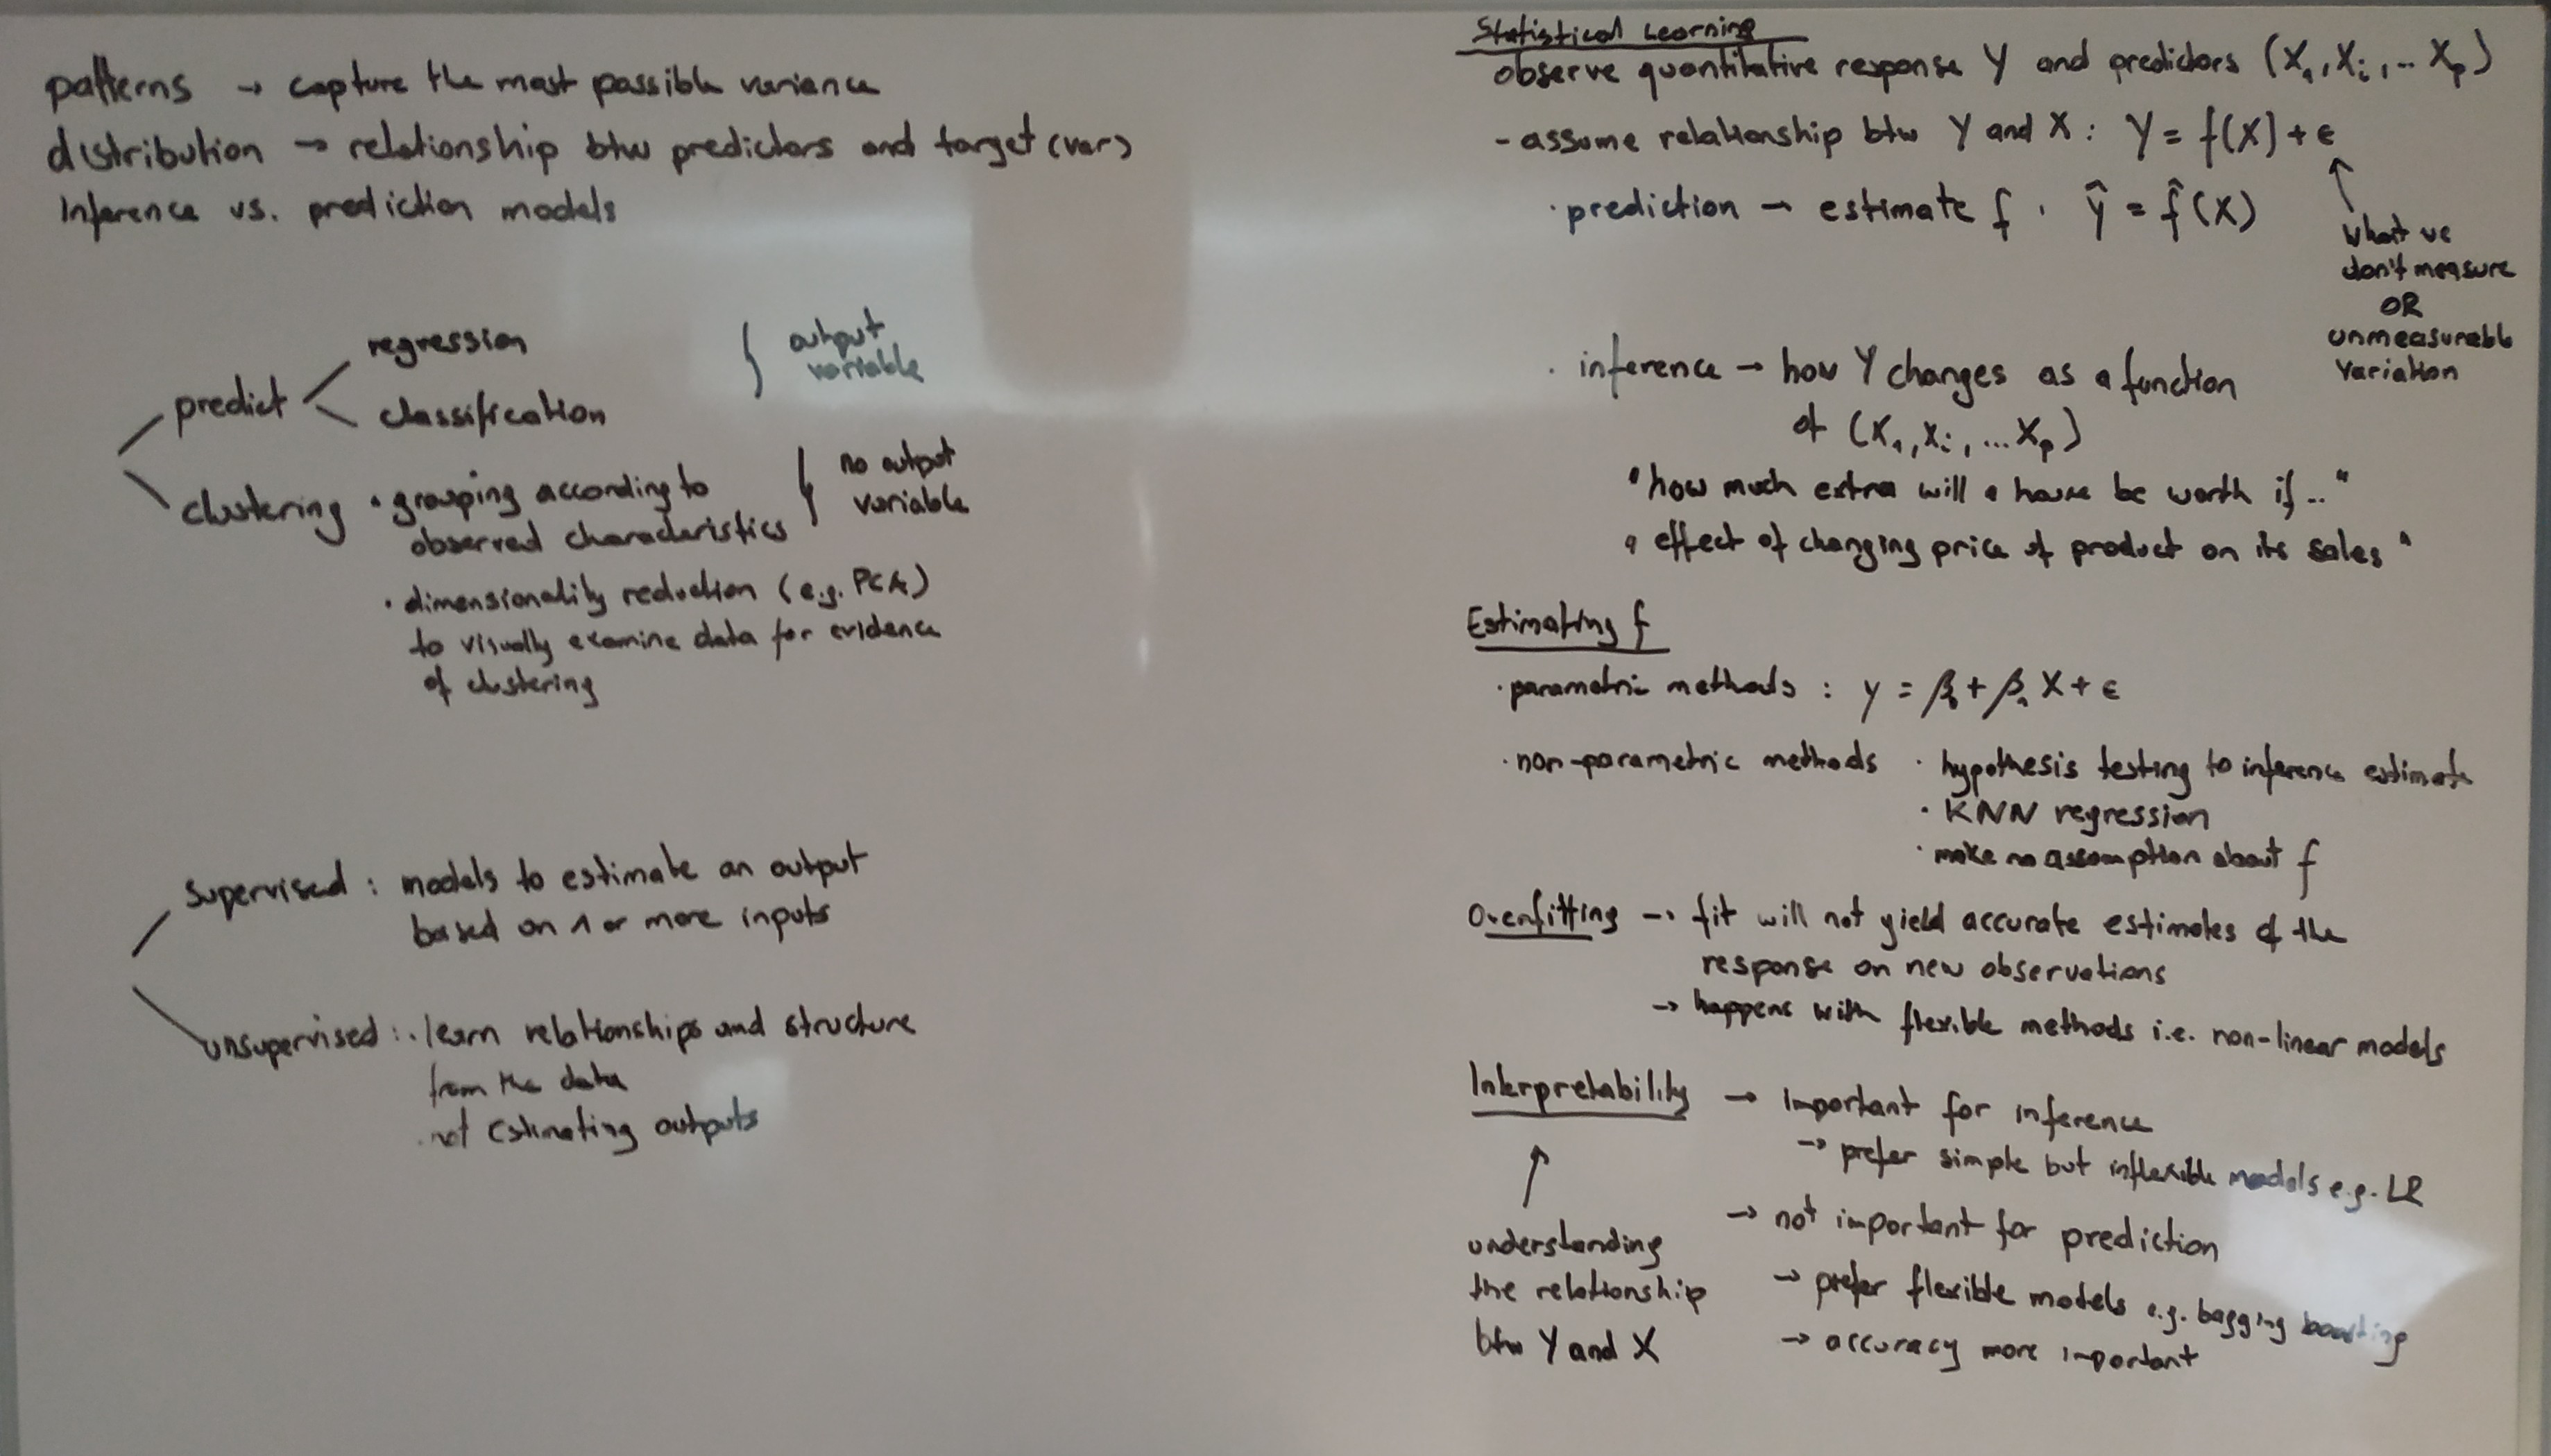 patterns → capture the most possible variance
distribution → relationship btw predictors and target (var)
Inference vs. prediction models
predict
regression
classification
output
variable
clustering
· grouping according to
observed characteristics
no output
variable
· dimensionality reduction (e.g. PCA)
to visually examine data for evidence
of clustering
supervised : models to estimate an output
based on 1 or more inputs
unsupervised : · learn relationships and structure
from the data
· not estimating outputs
Statistical Learning
observe quantitative response Y and predictors (X₁, Xᵢ, ... Xₚ)
- assume relationship btw Y and X : Y = f(X) + ε
· prediction → estimate f . Ŷ = f̂(X)
↑
what we
don't measure
OR
unmeasurable
variation
· inference → how Y changes as a function
of (X₁, Xᵢ, ... Xₚ)
"how much extra will a house be worth if.."
"effect of changing price of product on its sales"
Estimating f
· parametric methods : y = β₀ + β₁ X + ε
· non-parametric methods · hypothesis testing to inference estimate
· KNN regression
· make no assumption about f
Overfitting → fit will not yield accurate estimates of the
response on new observations
→ happens with flexible methods i.e. non-linear models
Interpretability → important for inference
→ prefer simple but inflexible models e.g. LR
→ not important for prediction
→ prefer flexible models e.g. bagging boosting
→ accuracy more important
↑
understanding
the relationship
btw Y and X